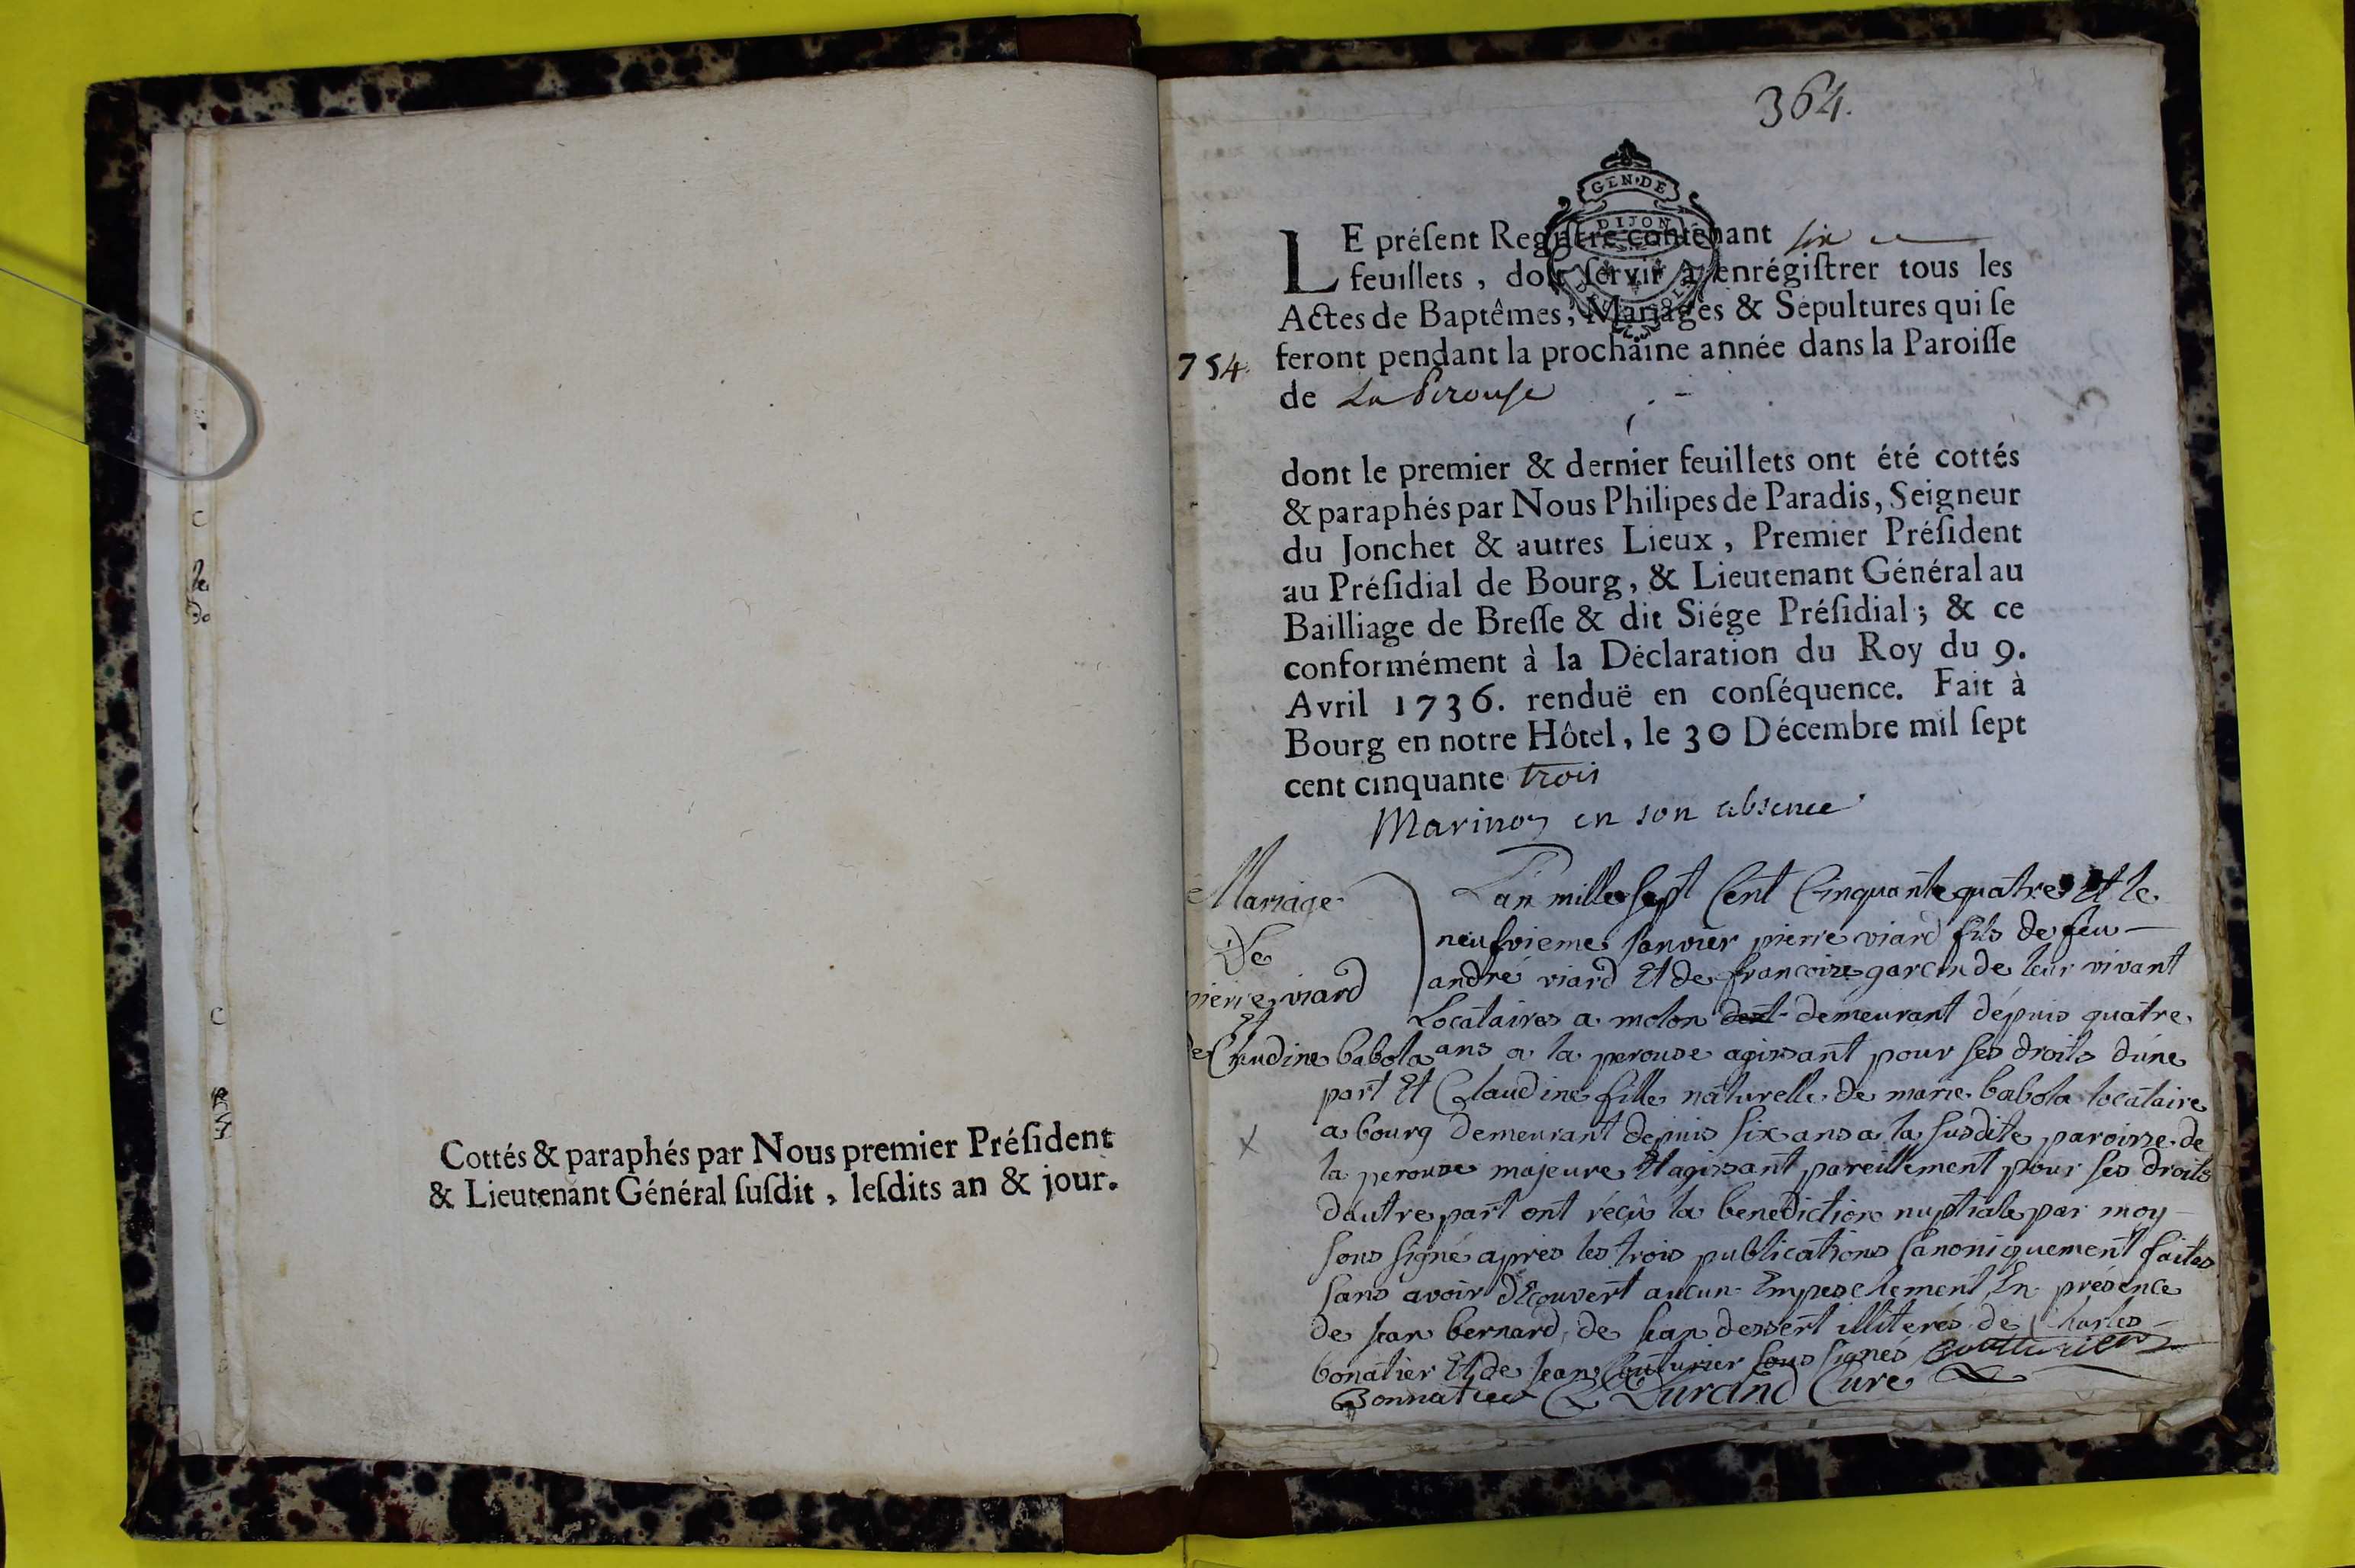 Cottés & paraphés par Nous premier Préſident
& Lieutenant Général ſuſdit, leſdits an & jour.
364.
GEN·DE
DIJON
LE préſent Regiſtre contenant six
feuillets, doit ſervir à enrégiſtrer tous les
Actes de Baptêmes, Mariages & Sépultures qui ſe
754. feront pendant la prochaine année dans la Paroiſſe
de La Perouse
dont le premier & dernier feuillets ont été cottés
& paraphés par Nous Philipes de Paradis, Seigneur
du Jonchet & autres Lieux, Premier Préſident
au Préſidial de Bourg, & Lieutenant Général au
Bailliage de Breſſe & dit Siége Préſidial; & ce
conformément à la Déclaration du Roy du 9.
Avril 1736. renduë en conſéquence. Fait à
Bourg en notre Hôtel, le 30 Décembre mil ſept
cent cinquante trois
en son absence
Mariage
De
pierre viard
et
de Claudine babola
L'an mille sept Cent Cinquante quatre Et le
neufvieme Janvier pierre viard fils de feu
andré viard Et de francoize garcin de leur vivant
Locataires a molon dont demeurant dépuis quatre
ans a la perouse agissant pour ses droits dúne
part Et Claudine fille náturelle de marie babola locátaire
a bourg demeurant depuis six ans a la susdite paroisse de
la perouse majeure Et agissant pareillement pour ses droits
dáutre part ont réçû la benediction nuptiale par moy
sous signé apres les trois publications Canoniquement faites
sans avoir découvert aucun Empeschement En présence
de Jean bernard, de Jean dessert illiterés de Charles
bonatier Et de Jean Couturier sous signés Coutturier
Bonnatier Durand Curé